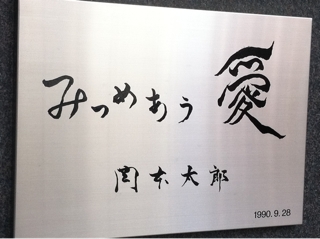 みつめあう 愛
関本太郎
1990.9.28